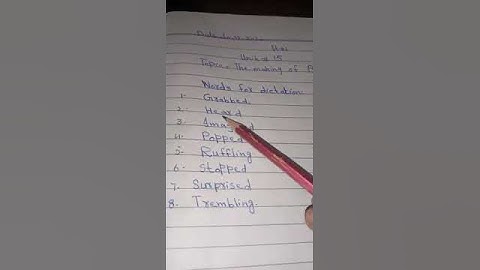 Unit # 15
Topic. The making of
Words for dictation
1. Grabbed.
2. Heard
3.
4. Popped
5. Ruffling
6. Stopped
7. Surprised
8. Trembling.